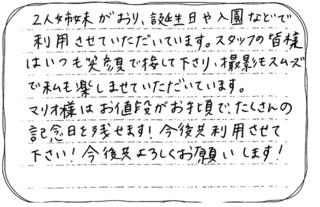 2人姉妹がおり、誕生日や入園などで
利用させていただいています。スタッフの皆様
はいつも笑顔で接して下さり、撮影もスムズ
で私も楽しませていただいています。
マリオ様はお値段がお手頃で、たくさんの
記念日を残せます！今後共利用させて
下さい！今後共よろしくお願いします！